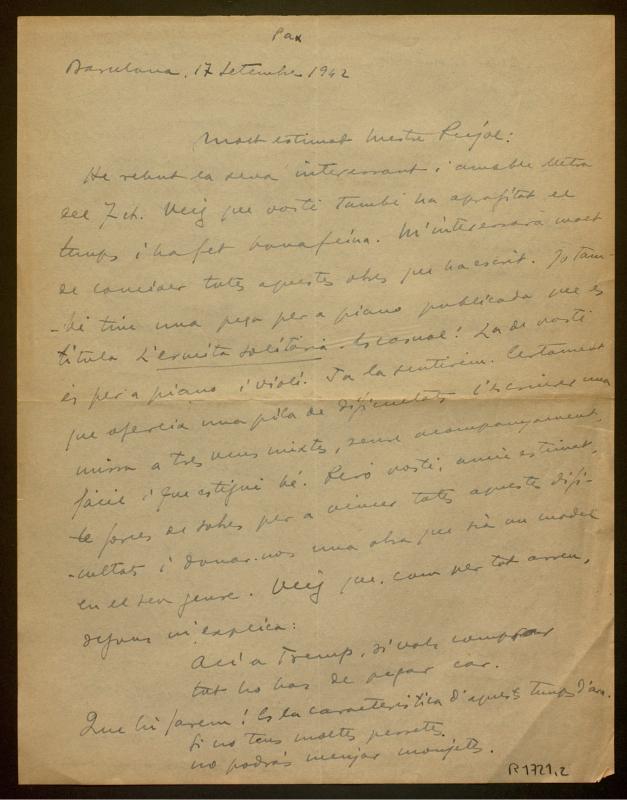 Pax
Barcelona, 17 Setembre 1942
Molt estimat Mestre Pujol:
He rebut la seva interessant i amable lletra
del 7 ch. Veig que vostè també ha aprofitat el
temps i ha fet bona feina. M'interessarà molt
de conèixer totes aquestes obres que ha escrit. Jo tam-
-bé tinc una peça per a piano publicada que es
titula L'ermita solitària. Es casual! La de vostè
és per a piano i violí. Ja la sentirem. Certament
que ofereix una pila de dificultats l'escriure una
missa a tres veus mixtes, sense acompanyament,
fàcil i que estigui bé. Però vostè, amic estimat,
té forces de sobres per a vèncer totes aquestes difi-
-cultats i donar-nos una obra que sia un model
en el seu genre. Veig que, com per tot arreu,
segons m'explica:
Ací a Tremp, si vols comprar
tot ho has de pagar car.
Que hi farem! Es la característica d'aquests temps d'ara.
Si no tens moltes pessetes
no podràs menjar mongetes.
R 1721,2